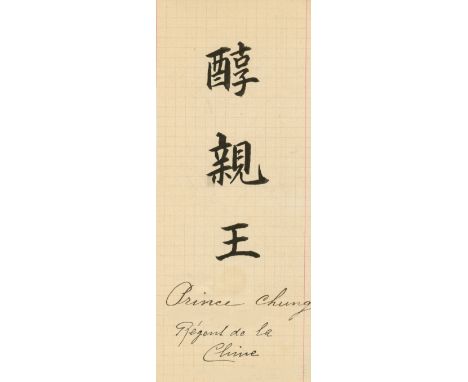 醇親王
Prince Chung
Régent de la
Chine